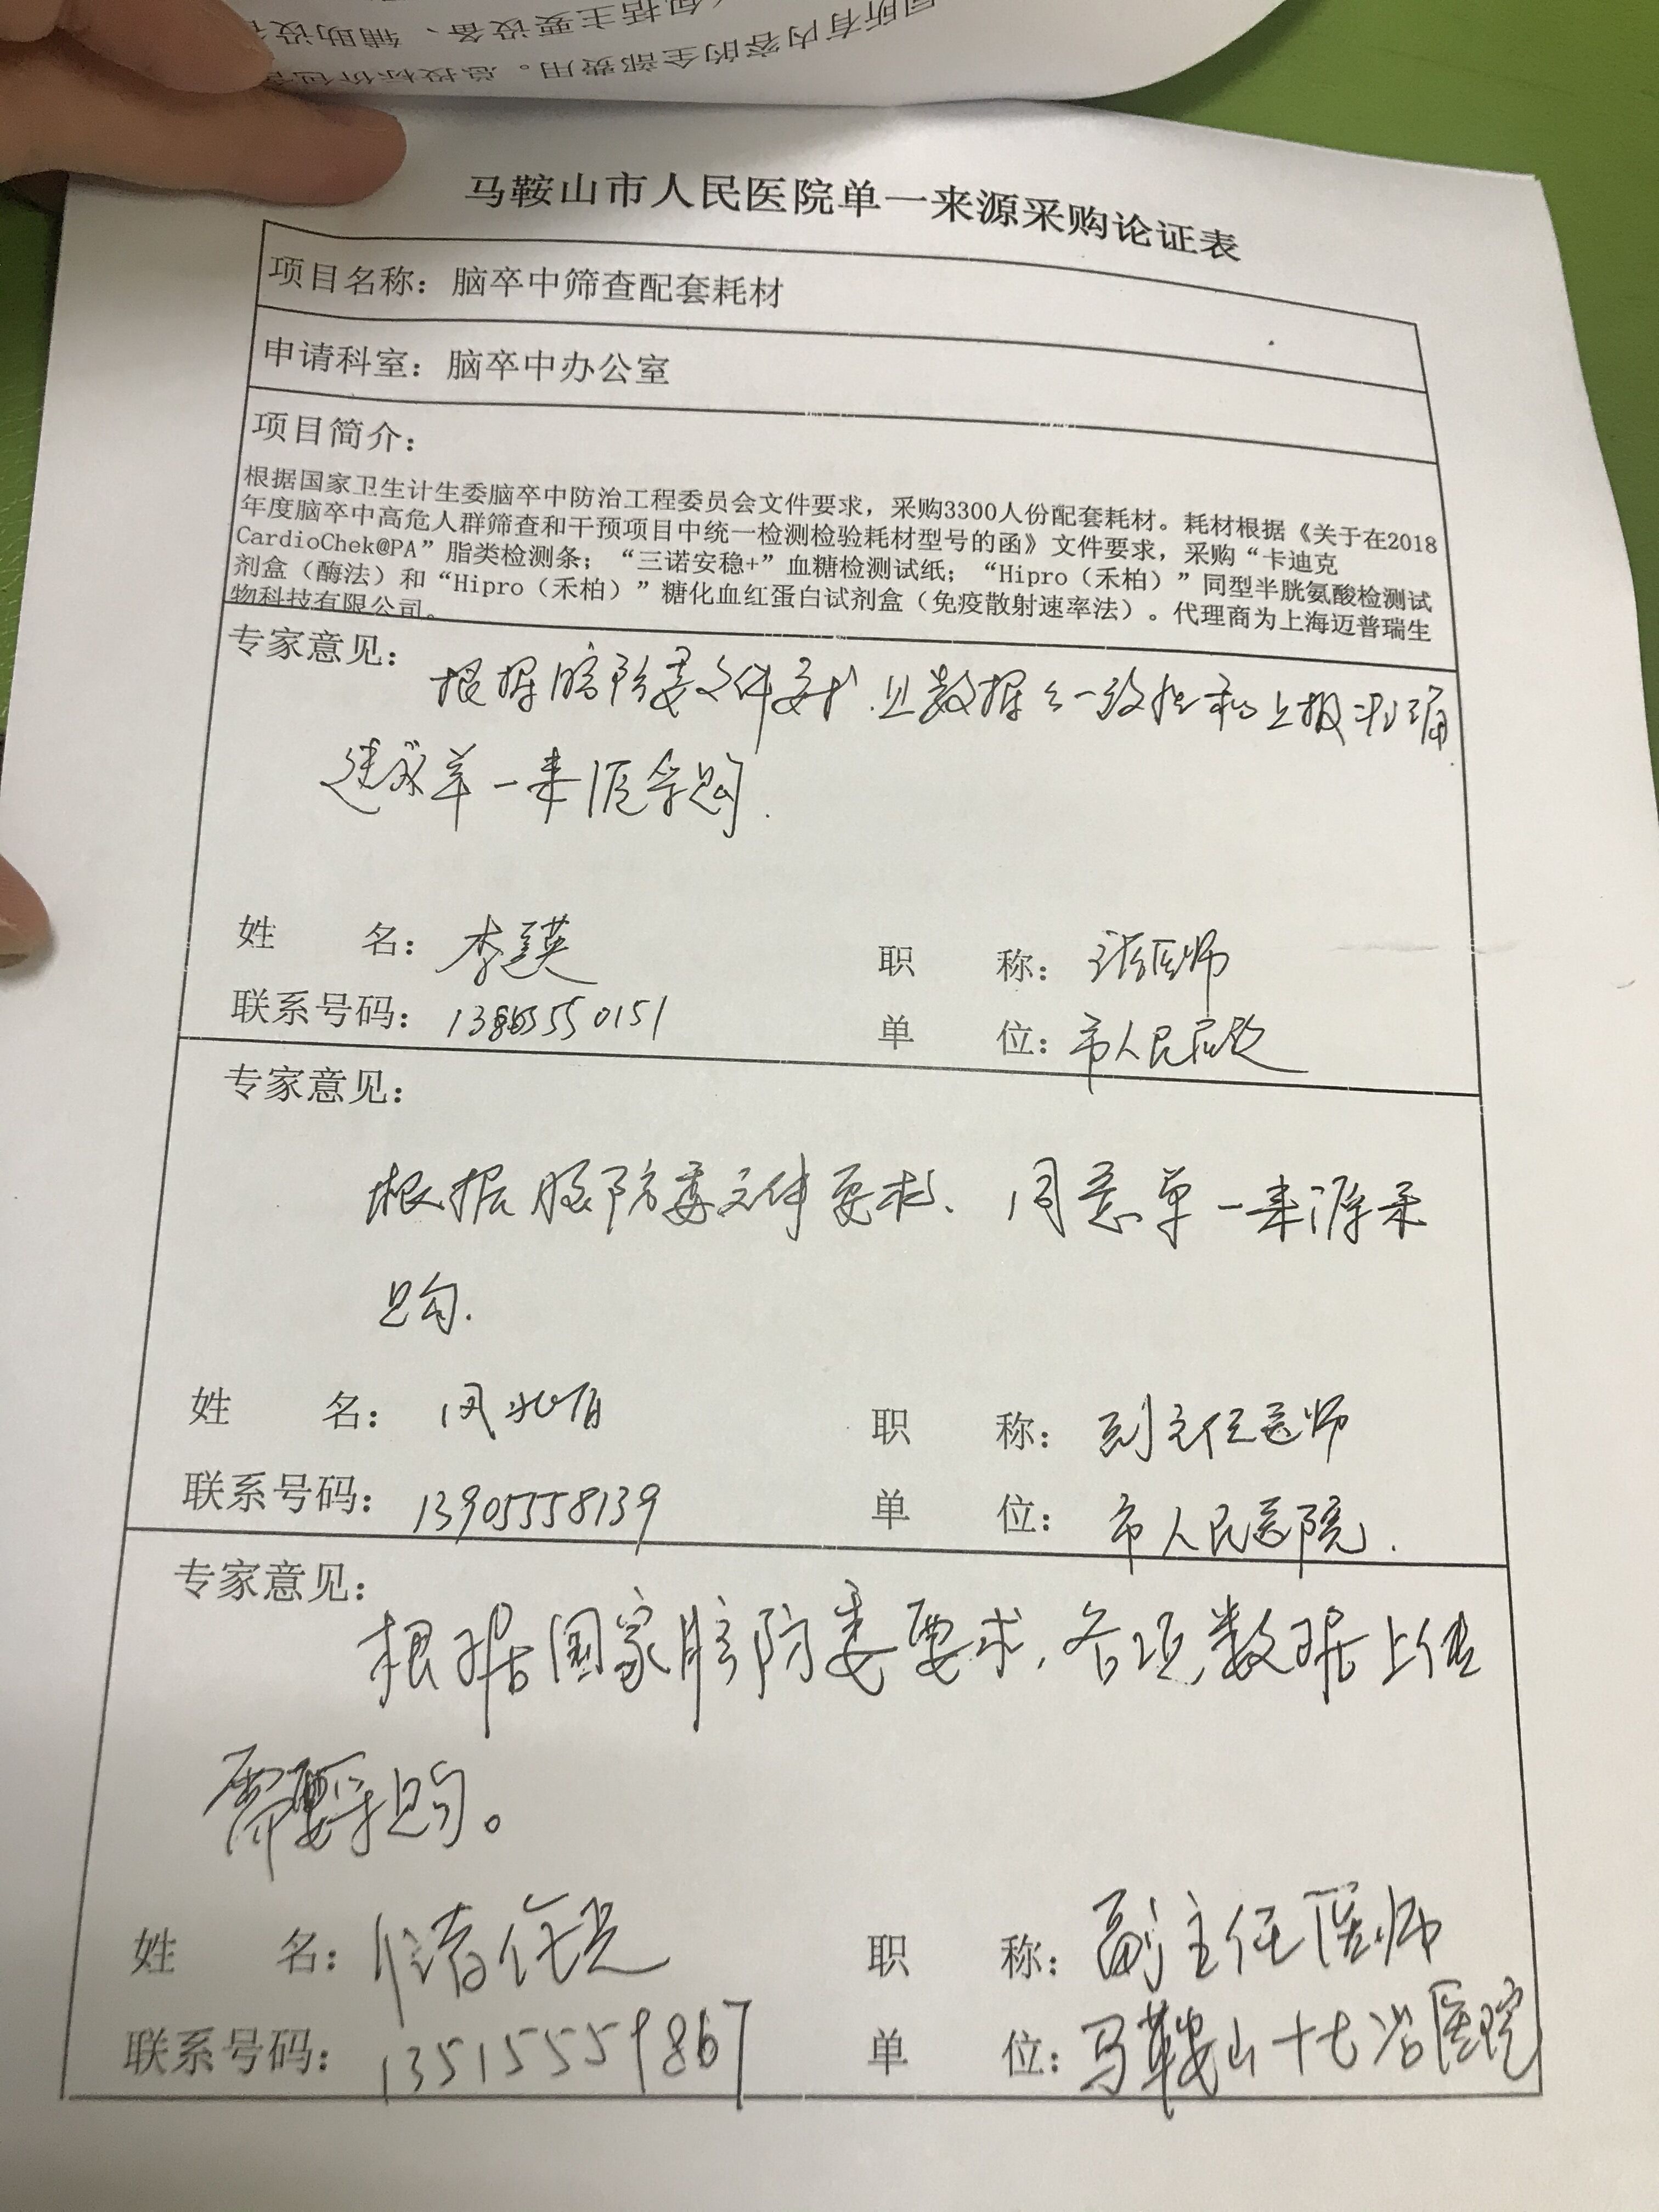 包括主要设备、辅助设
同所有内容的全部费用。总投标价包
马鞍山市人民医院单一来源采购论证表
项目名称：脑卒中筛查配套耗材
申请科室：脑卒中办公室
项目简介：
根据国家卫生计生委脑卒中防治工程委员会文件要求，采购3300人份配套耗材。耗材根据《关于在2018
年度脑卒中高危人群筛查和干预项目中统一检测检验耗材型号的函》文件要求，采购“卡迪克
CardioChek@PA”脂类检测条；“三诺安稳+”血糖检测试纸；“Hipro（禾柏）”同型半胱氨酸检测试
剂盒（酶法）和“Hipro（禾柏）”糖化血红蛋白试剂盒（免疫散射速率法）。代理商为上海迈普瑞生
物科技有限公司。
专家意见：
根据脑防委文件要求.且数据之一致性和上报准确
建议单一来源采购.
姓 名：李 职 称：主任医师
联系号码： 单 位：市人民医院
专家意见：
根据脑防委文件要求、同意单一来源采
购.
姓 名： 职 称：副主任医师
联系号码：13905558139 单 位：市人民医院.
专家意见：
根据国家脑防委要求,各项数据上传
需要采购。
姓 名： 职 称：副主任医师
联系号码：13515559867 单 位：马鞍山十七冶医院